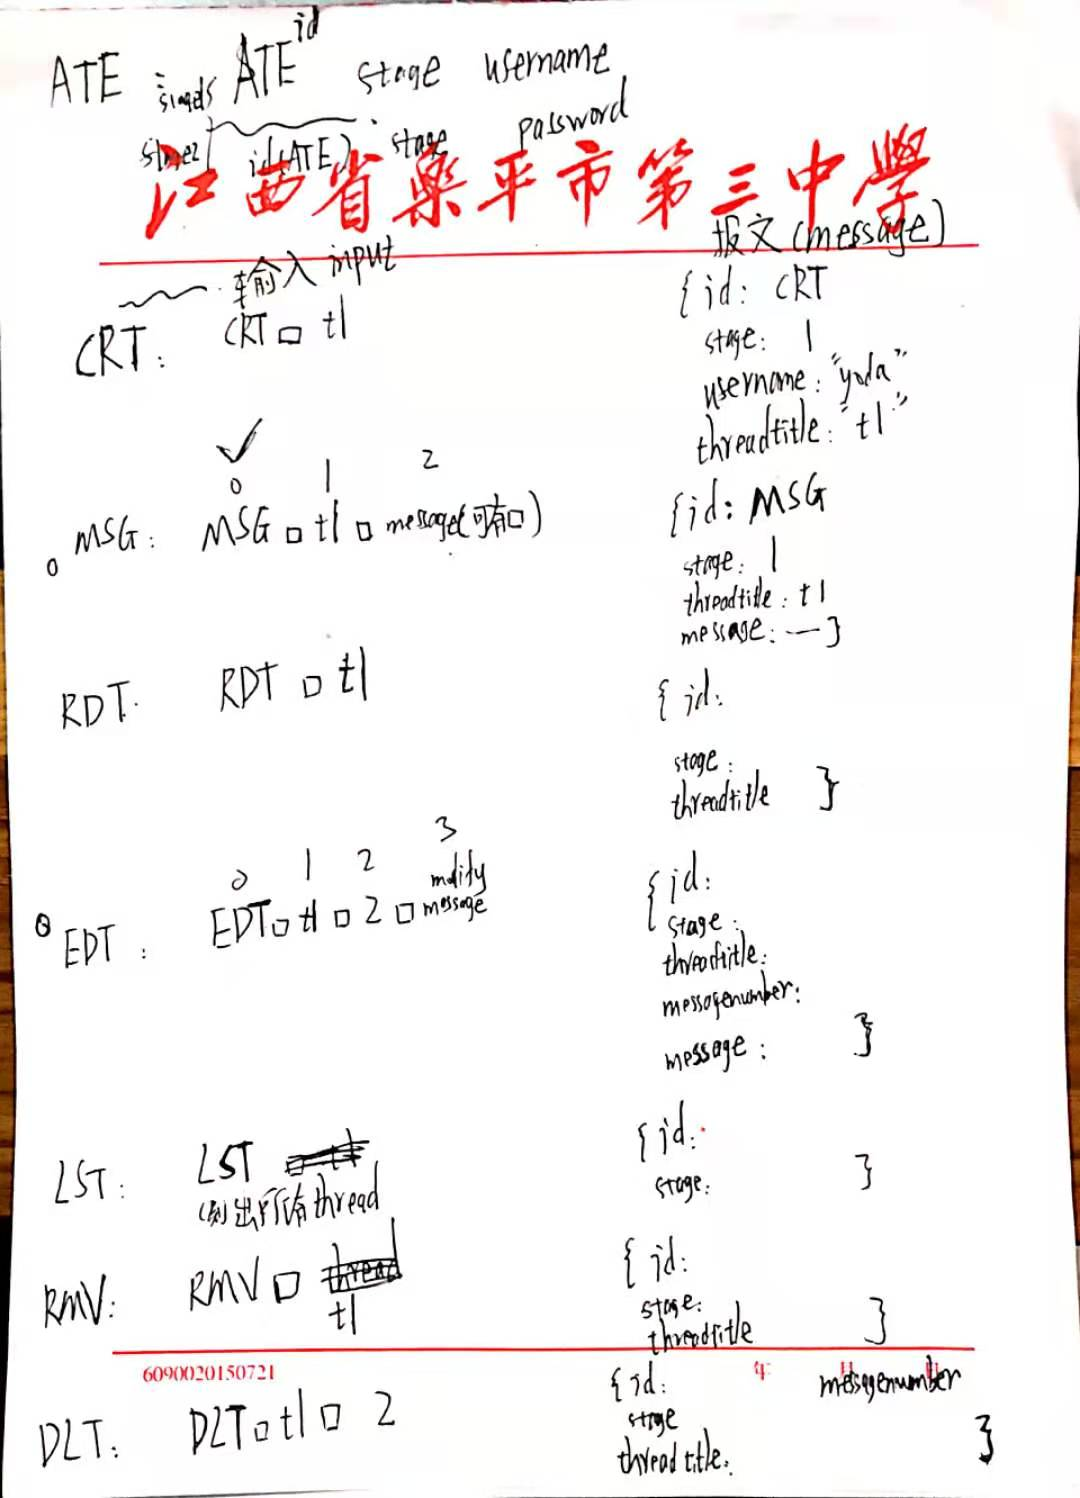 ATE ATE id stage username
id(ATE) stage password
江西省樂平市第三中學
输入 input 报文(message)
CRT: CRT□t1 {id: CRT
stage: 1
username: "yoda"
threadtitle: "t1"
✓
0 1 2
0 MSG: MSG□t1□message(可有□) {id: MSG
stage: 1
threadtitle: t1
message: —}
RDT: RDT□t1 {id:
stage:
threadtitle }
0 1 2 3
EDT: EDT□t1□2□modify message {id:
stage:
threadtitle:
messagenumber:
message: }
LST: LST {id:
(列出所有thread stage: }
RMV: RMV□thread {id:
t1 stage:
threadtitle }
6090020150721 年
DLT: DLT□t1□2 {id: messagenumber
stage
threadtitle: }